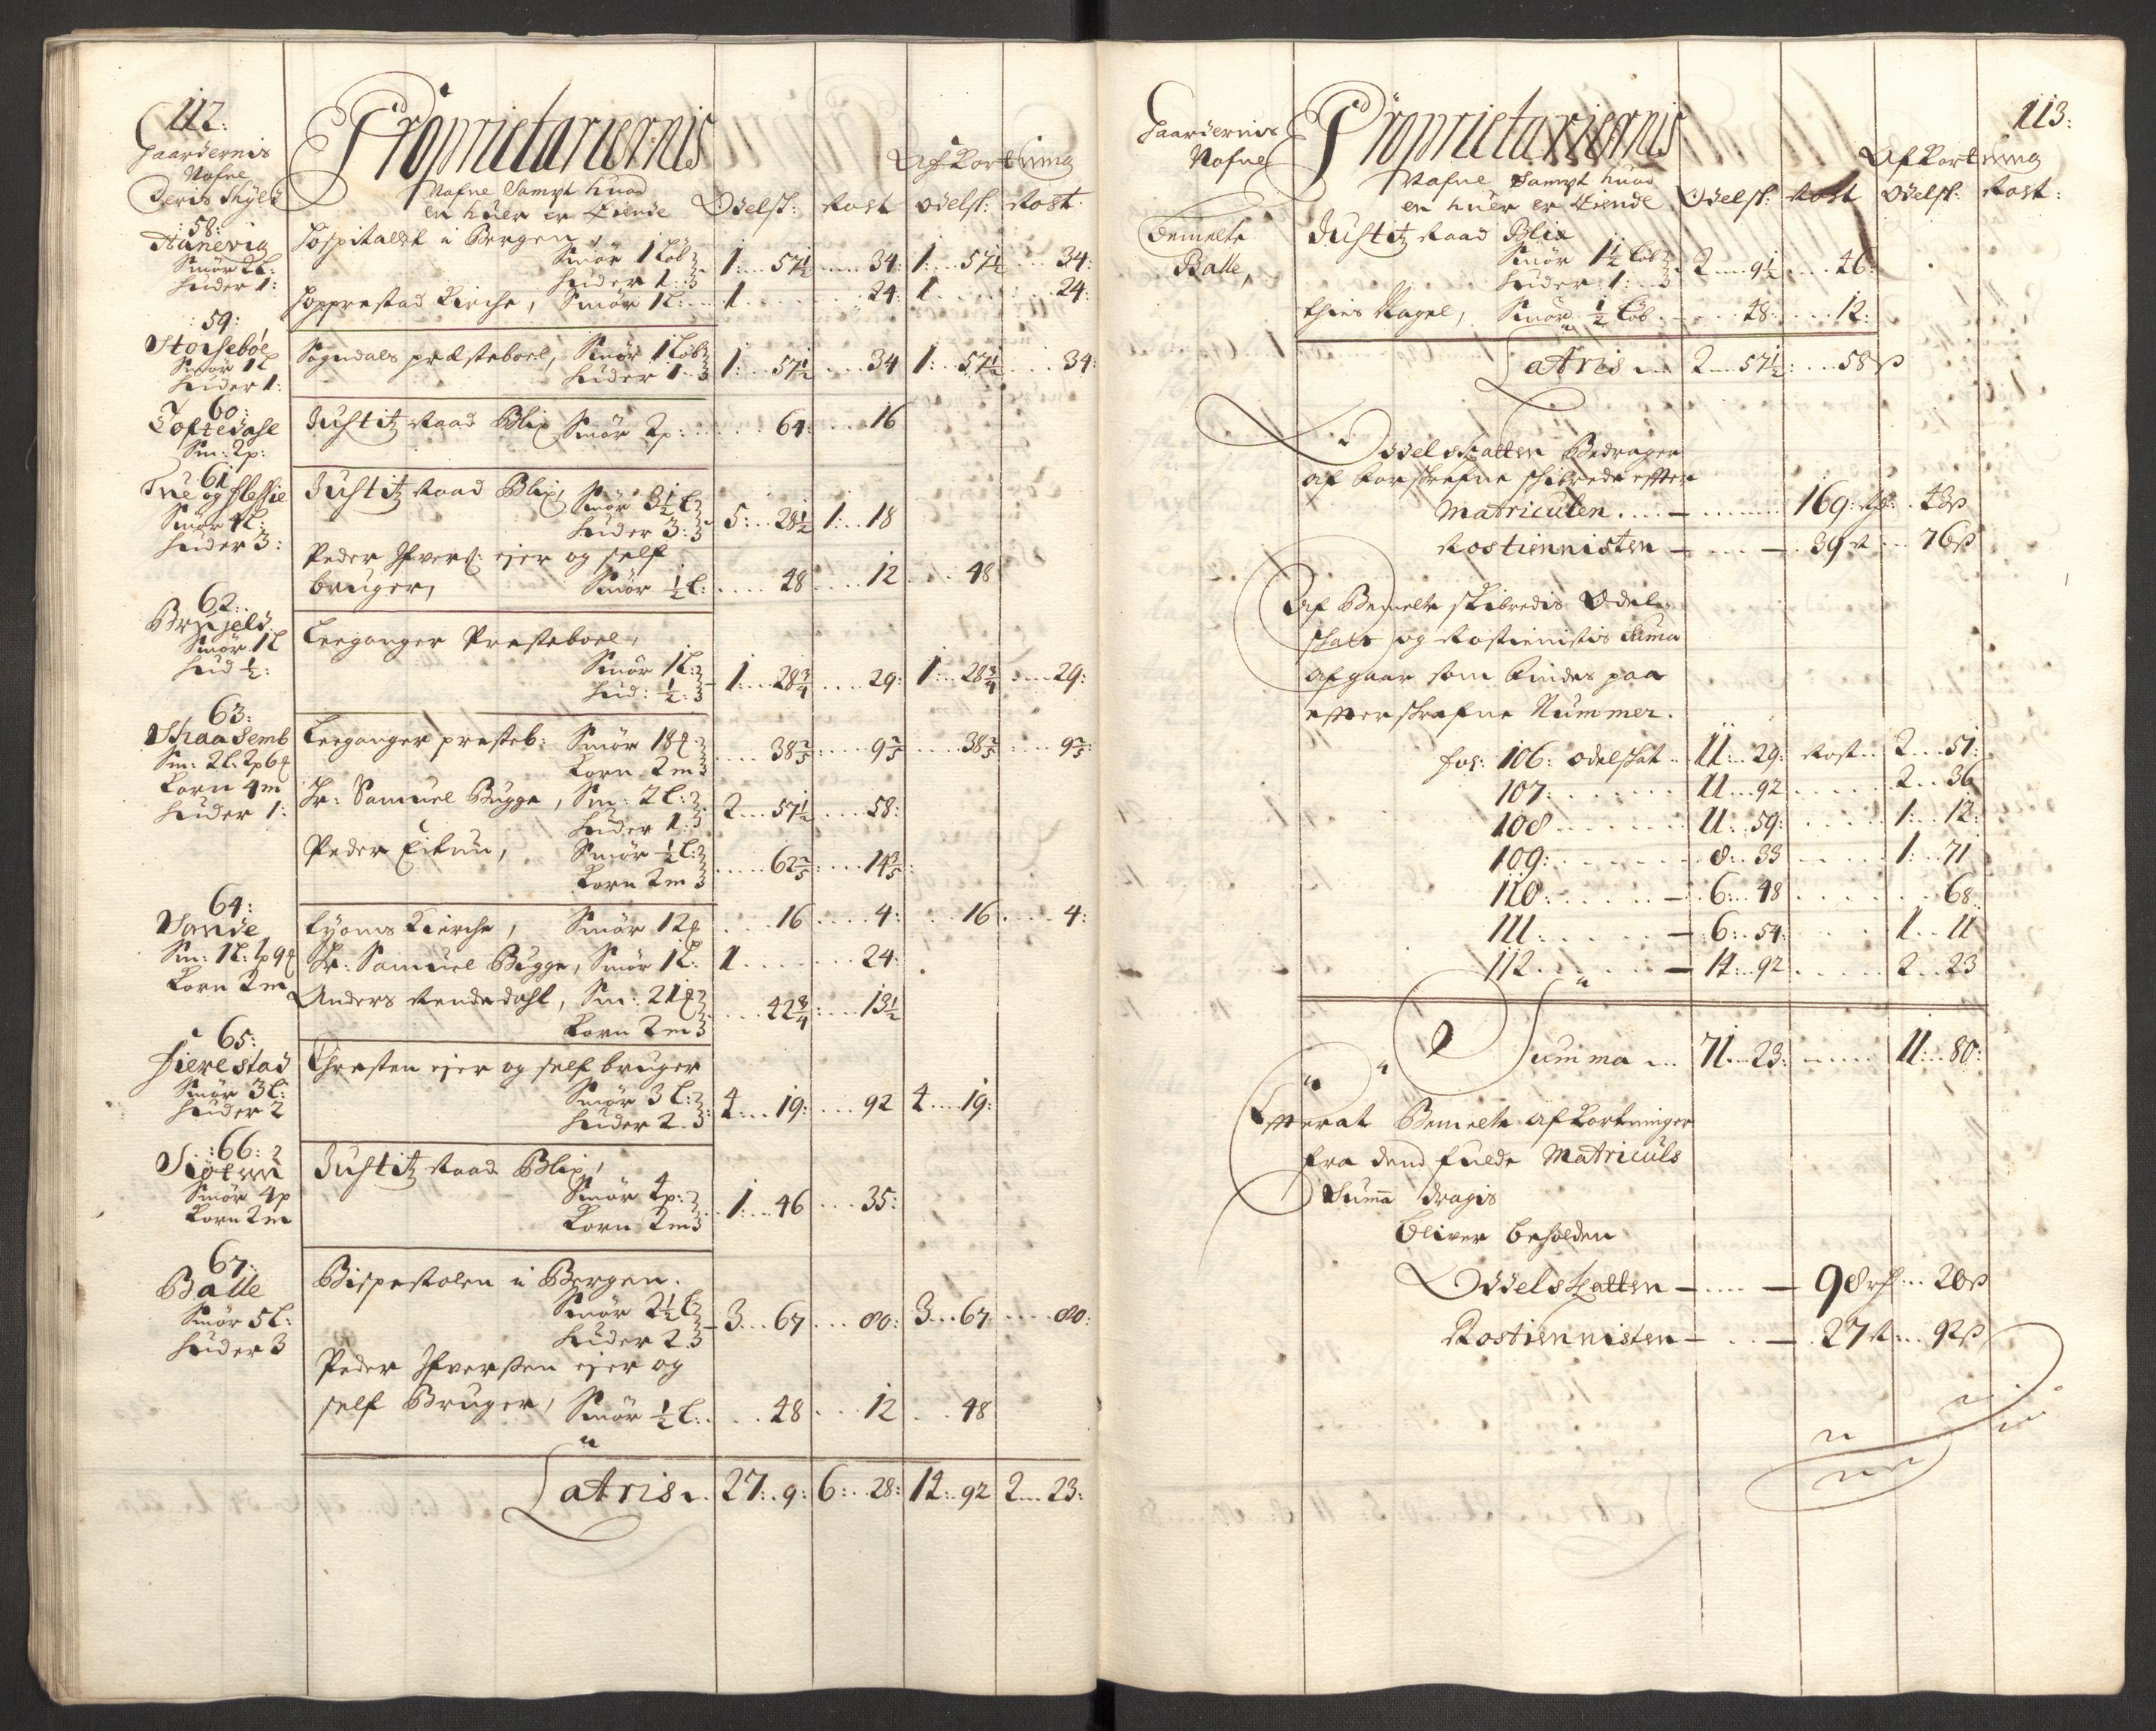 112:
Gaardernis
Nafne
Deris Skyld
Proprietariernis
Nafne Sampt huad
en huer er Eiende
Odelsk: Rost
Afkortning
Odelsk: Rost:
58:
Hanevig
Smør 2 L:
Huder 1:
Hospitalet i Bergen,
Smør 1 Løb
Huder 1:
1: 57½ 34: 1: 57½ 34:
Hopprestad Kirche, Smør 1 L: 1 24: 1 24:
59:
Storhebøe
Smør 1 L
Huder 1:
Sogndals præsteboel, Smør 1 Løb
Huder 1
1: 57½ 34 1: 57½ 34:
60:
Toftedahl
Sm: 2p:
Justitz Raad Blix Smør 2p: 64: 16
61
Tue og Flessie
Smør 4 L:
Huder 3:
Justitz Raad Blix, Smør 3½ L
Huder 3:
5: 28½ 1: 18
Peder Ifvers: ejer og self
bruger, Smør ½ L: 48 12 48
62:
Brujeld
Smør 1 L
Hud ½:
Leeganger Presteboel,
Smør 1 L:
Hud: ½:
1: 28¾ 29: 1: 28¾ 29:
63:
Skaasemb
Sm: 2 L: 2p 6
Korn 4 m
Huder 1:
Leeganger presteb: Smør 18
Korn 2 m
38⅖ 9⅗ 38⅖ 9⅗:
Hr: Samuel Bugge, Sm: 2 L:
Huder 1:
2 57½ 58:
Peder Eitun, Smør ½ L:
Korn 2 m
62⅖: 14⅗:
64:
Vonde
Sm: 1 L: 1p 9
Korn 2 m
Lyoms Kierche, Smør 12 16 4: 16 4:
Hr: Samuel Bugge, Smør 1 L: 1 24:
Anders Rendedahl, Sm: 21
Korn 2 m
42¾: 13½
65:
Fierestad
Smør 3 L:
Huder 2
Chresten ejer og self bruger
Smør 3 L:
Huder 2
4: 19: 92 4 19:
:66:
Siøtun
Smør 4p
Korn 2 m
Justitz Raad Blix,
Smør 4p:
Korn 2 m
1: 46 35:
67:
Balle
Smør 5 L:
Huder 3
Bispestolen i Bergen.
Smør 2½ L
Huder 2
3 67 80: 3 67 80:
Peder Ifverssen ejer og
self Bruger, Smør ½ L: 48 12 48
Latris 27: 9: 6: 28: 14: 92 2 23:
113:
Gaardernis
Nafne
Proprietariernis
Nafne Sampt huad
en huer er Eiende
Odelsk: Rost
Afkortning
Odelsk: Rost:
Bemelte
Balle,
Justitz Raad Blix
Smør 1½ Løb
Huder 1:
2 9½ 46:
Thies Nagel, Smør ½ Løb 48: 12:
Latris 2 57½: 58 s
Odelskatten Bedrager
af Forskrefne Skibrede effter
Matriculen 169: Rd: 43 s
Rostiennisten 39 R 76 s
Af Bemelte Skibredis Odel
skatt og Rostienistis Suma
Afgaar som findes paa
efterskrefne Nummer.
fol: 106: Odelskat 11: 29: Rost 2 51:
107: 11 92 2 36
108 11: 59: 1: 12:
109: 8: 33 1: 71
110: 6: 48 68:
111: 6: 54: 1 11
112: 14: 92 2 23
Summa 71 23: 11: 80:
Efferat Bemelte Afkortninger
fra dend fulde Matriculs
Suma dragis
bliver beholden
Odelskatten 98 rd 20 s
Rostiennisten 27 R 92 s